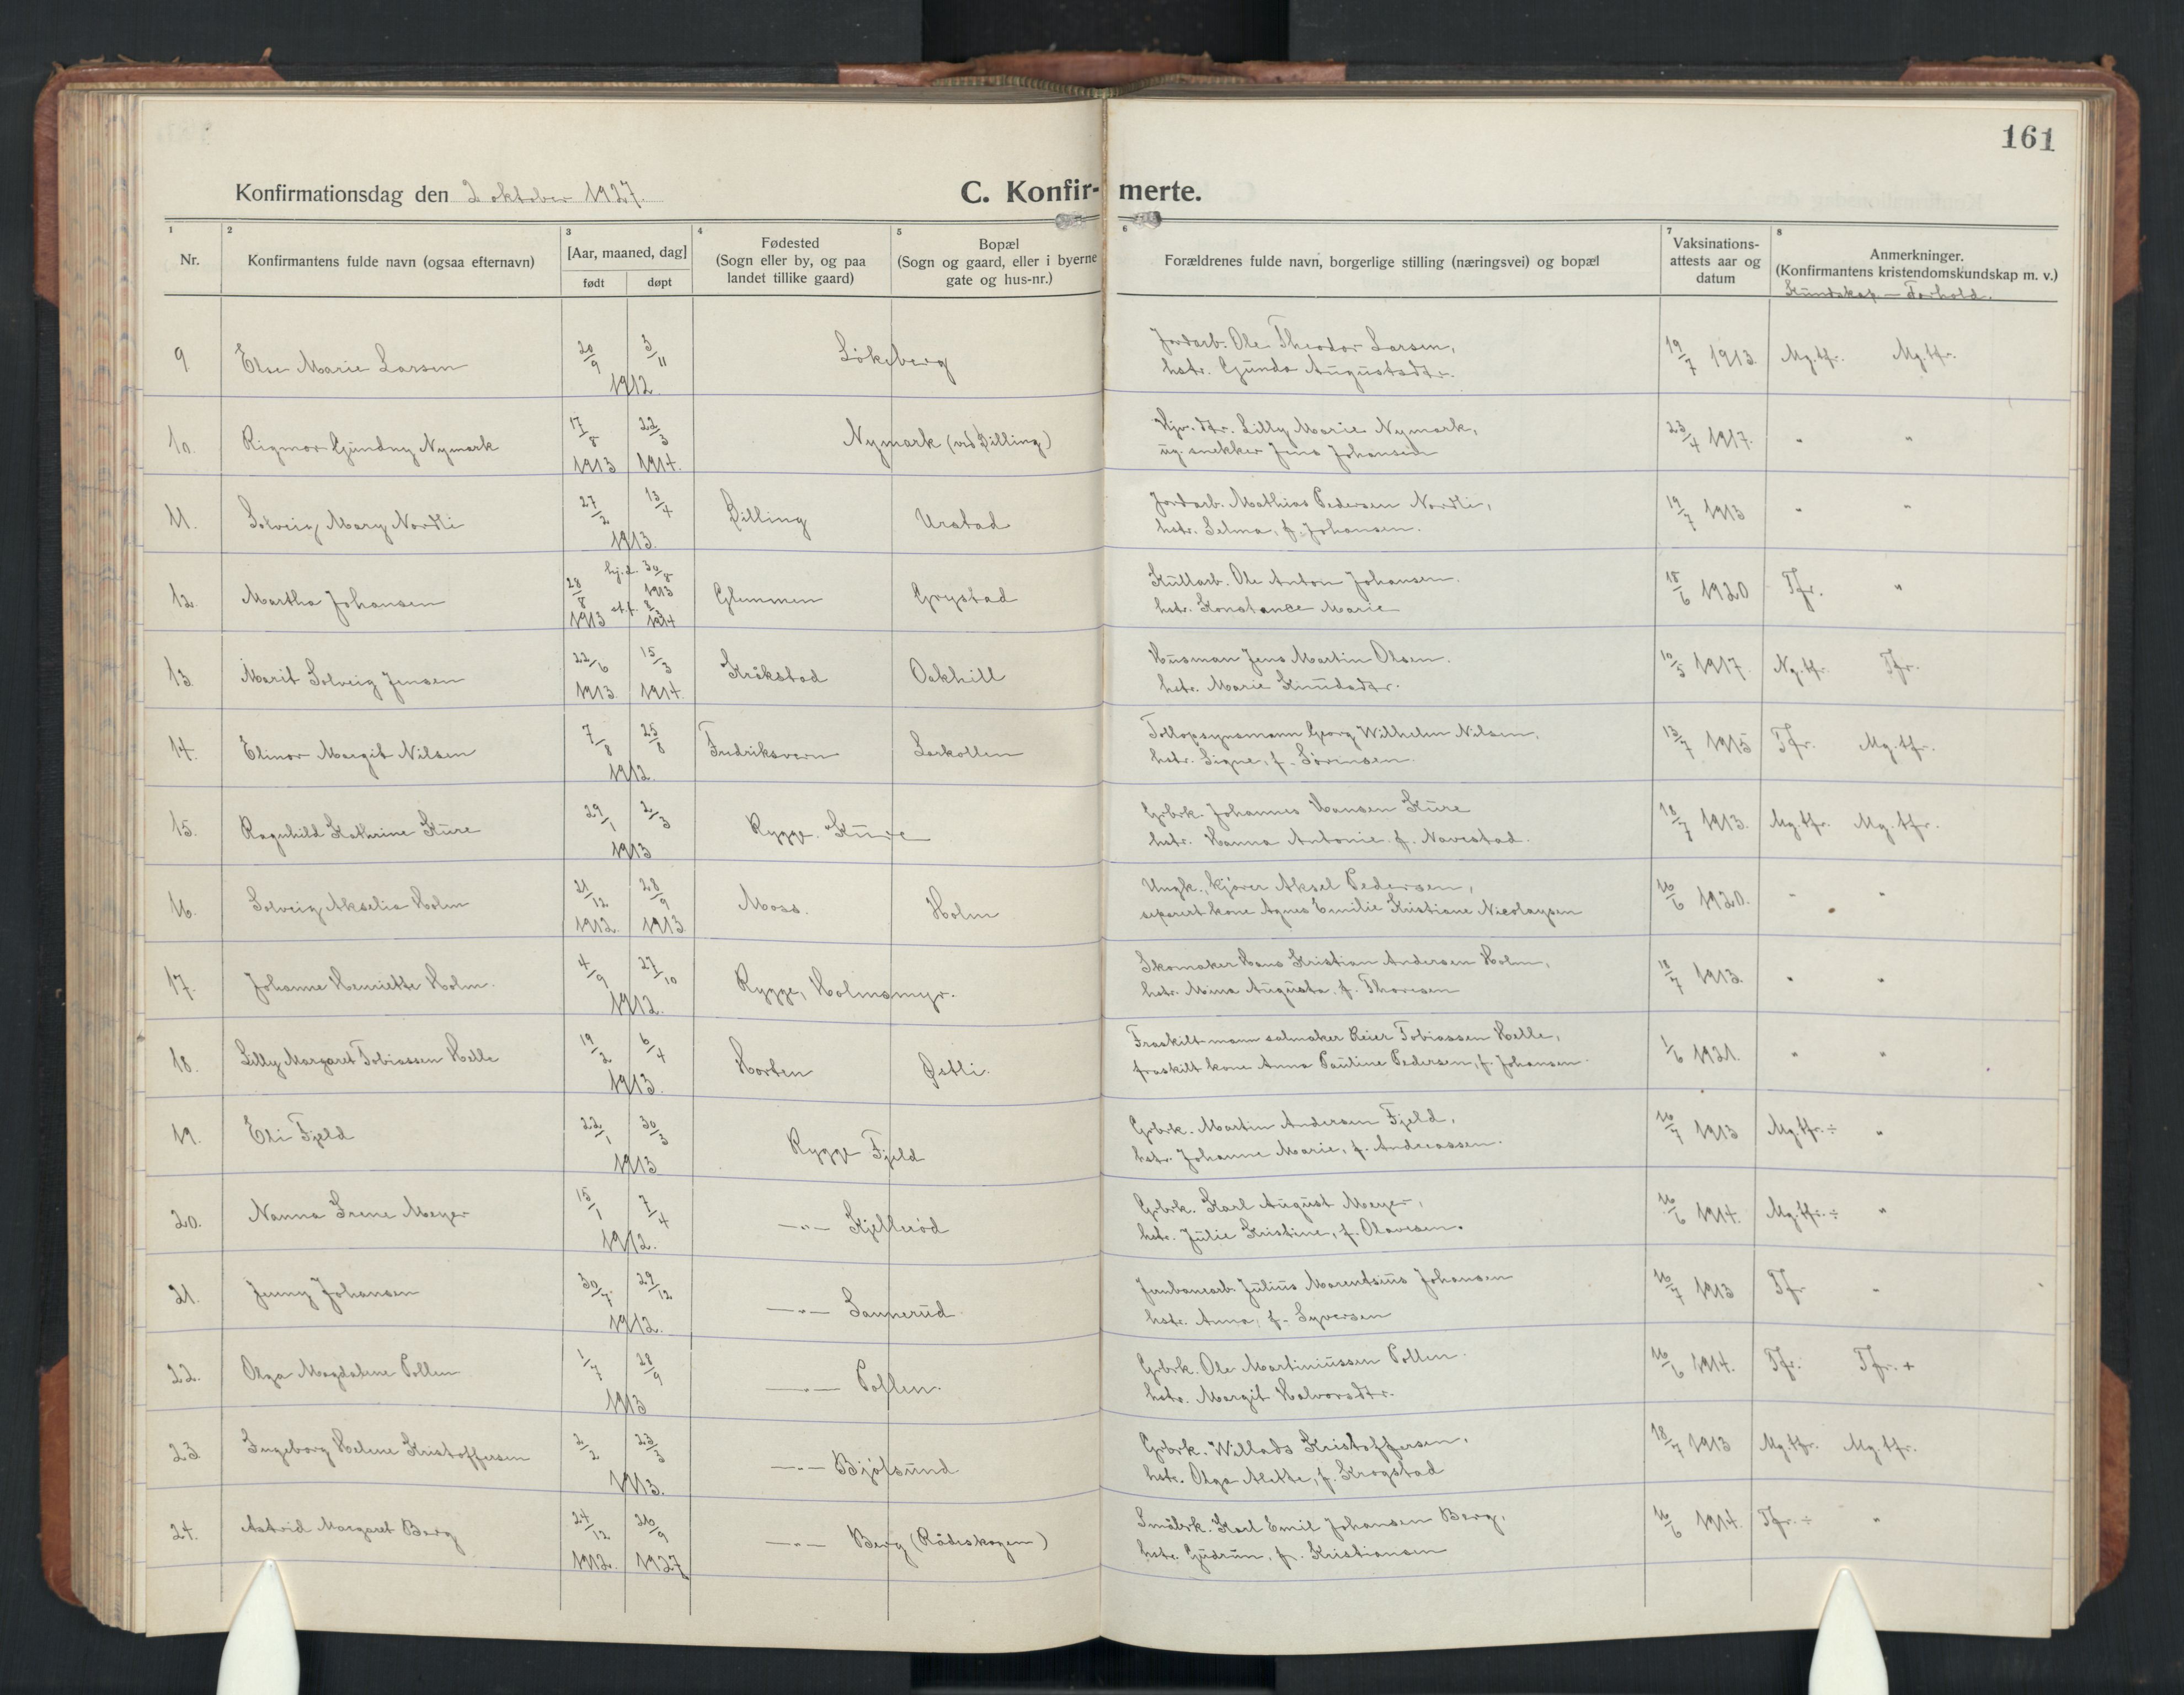 161
Konfirmationsdag den 2 oktober 1927.
C. Konfir- merte.
1 2 3 4 5 6 7 8
Nr.
Konfirmantens fulde navn (ogsaa efternavn)
[Aar, maaned, dag]
født døpt
Fødested
(Sogn eller by, og paa
landet tillike gaard)
Bopæl
(Sogn og gaard, eller i byerne
gate og hus-nr.)
Forældrenes fulde navn, borgerlige stilling (næringsvei) og bopæl
Vaksinations-
attests aar og
datum
Anmerkninger.
(Konfirmantens kristendomskundskap m. v.)
Kundskap. — Forhold.
9 Else Marie Larsen 20/9 3/11 1912 Løkeberg
Jordarb. Ole Theodor Larsen,
hstr. Gunda Augustsdtr.
19/7 1913. Mg.tfr. Mg.tfr.
10. Rigmor Gundny Nymark 17/8 1913 22/3 1914. Nymark (ved Dilling)
Hjv. dtr. Lilly Marie Nymark,
ug. snekker Jens Johansen
23/4 1917. " "
11. Solveig Mary Nordli 27/2 13/4 1913. Dilling Urstad
Jordarb. Mathias Pedersen Nordli,
hstr. Selma, f. Johansen.
19/7 1913 " "
12. Martha Johansen 28/8 1913 hj.d. 30/8 1913 st.f. 1914 Glemmen Grystad
Kullarb. Ole Anton Johansen.
hstr. Konstance Marie
18/6 1920 Tfr. "
13. Marit Solveig Jensen 22/6 1913. 15/3 1914. Kråkstad Oakhill
Husman Jens Martin Olsen.
hstr. Marie Knudsdtr.
10/5 1917. Ng.tfr. Tfr.
14. Elinor Margit Nilsen 7/8 25/8 1912. Fredriksvern Larkollen
Tollopsynsmann Georg Wilhelm Nilsen,
hstr. Signe, f. Sørensen.
13/7 1915 Tfr. Mg.tfr.
15. Ragnhild Kathrine Kure 29/1 2/3 1913 Rygge. Kure
Grbrk. Johannes Hansen Kure
hstr. Hanna Antonie f. Navestad.
18/7 1913. Mg.tfr. Mg.tfr.
16. Solveig Akselia Holm 21/12 1912. 28/9 1913 Moss. Holm
Ungk., kjører Aksel Pedersen,
separert kone Agnes Emilie Kristiane Nicolaysen
16/6 1920. " "
17. Johanne Henriette Holm. 4/9 27/10 1912. Rygge, Holmsmyr.
Skomaker Hans Kristian Andersen Holm,
hstr. Mina Augusta, f. Thoresen
18/7 1913. " "
18. Lilly Margaret Tobiassen Helle 19/2 6/4 1913. Horten Østli.
Fraskilt mann salmaker Reier Tobiassen Helle,
fraskilt kone Anna Pauline Pedersen, f. Johansen.
1/6 1921. " "
19. Eli Fjeld 22/1 30/3 1913 Rygge Fjeld
Grbrk. Martin Andersen Fjeld,
hstr. Johanne Marie, f. Andreassen.
16/7 1913 Mg.tfr. ÷ "
20. Nanna Irene Meyer 15/1 7/4 1912. —"— Kjellerød
Grbrk. Karl August Meyer,
hstr. Julie Kristine, f. Olavesen.
16/6 1914. Mg.tfr. ÷ "
21. Jenny Johansen 30/7. 29/12 1912. —"— Sannerud.
Jernbanearb. Julius Marentsius Johansen
hstr. Anna, f. Syversen
16/7 1913 Tfr "
22. Olga Magdalene Pollen 1/7 28/9 1913 —"— Pollen.
Grbrk. Ole Martiniussen Pollen.
hstr. Margit Halvorsdtr.
16/6 1914. Tfr. Tfr. +
23. Ingeborg Helene Kristoffersen 2/2 23/3 1913. —"— Bjølsund
Grbrk. Willads Kristoffersen,
hstr. Olga Alette, f. Krogstad
18/7 1913 Mg.tfr. Mg.tfr.
24. Astrid Margaret Berg 24/12 1912. 26/9 1927 —"— Berg (Rådeskogen)
Småbrk. Karl Emil Johansen Berg,
hstr. Gudrun, f. Kristiansen
16/6 1914. Tfr. ÷ "